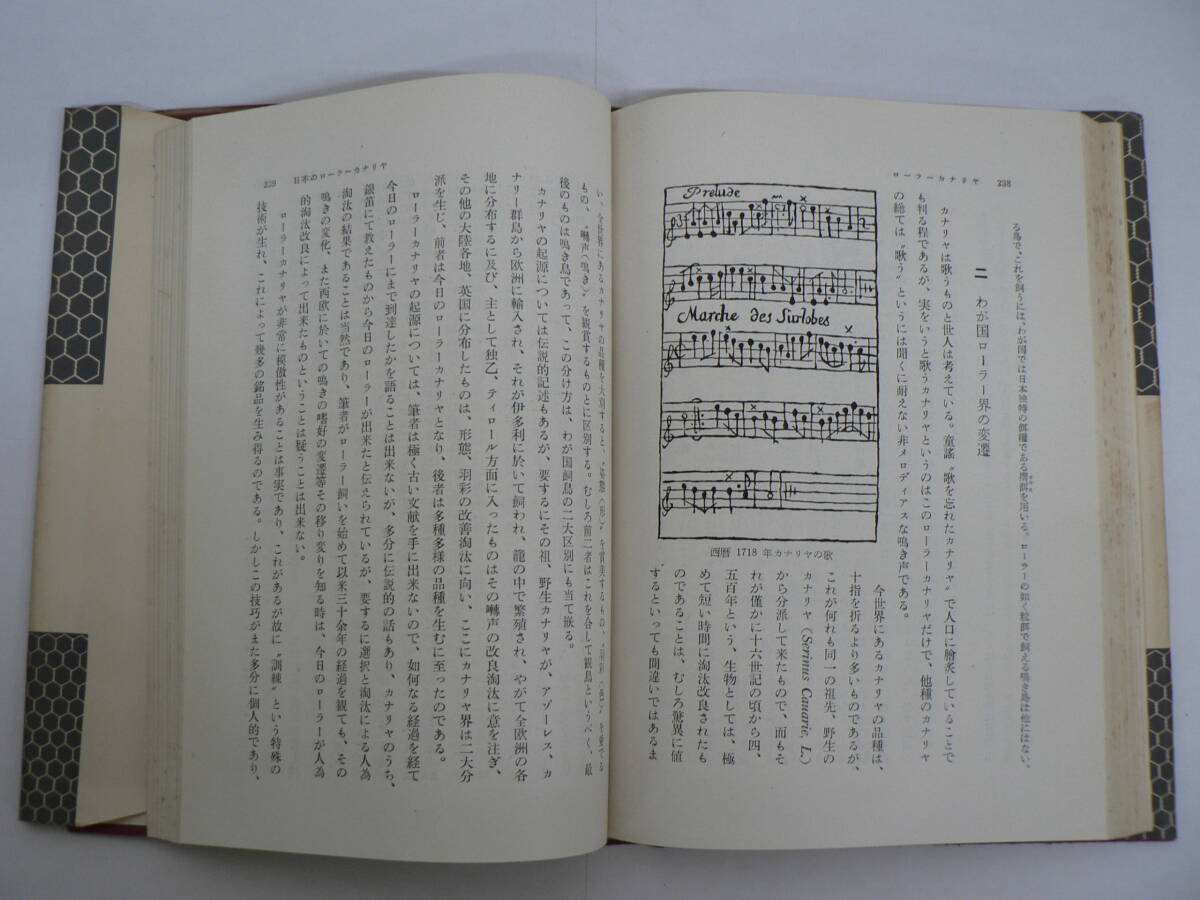 ローラーカナリヤ 238
る鳥で、これを飼うには、わが国では日本独特の餌糧である摺餌を用いる。ローラーの如く粒餌で飼える鳴き鳥は他にはない。
二 わが国ローラー界の変遷
カナリヤは歌うものと世人は考えている。童謡〝歌を忘れたカナリヤ〟で人口に膾炙していることで
も判る程であるが、実をいうと歌うカナリヤというのはこのローラーカナリヤだけで、他種のカナリヤ
の総ては〝歌う〟というには聞くに耐えない非メロディアスな鳴き声である。
Prelude
Marche des Surlobes
西暦 1718 年カナリヤの歌
今世界にあるカナリヤの品種は、
十指を折るより多いものであるが、
これが何れも同一の祖先、野生の
カナリヤ（Serinus Canarie, L.）
から分派して来たもので、而もそ
れが僅かに十六世記の頃から四、
五百年という、生物としては、極
めて短い時間に淘汰改良されたも
のであることは、むしろ驚異に値
するといっても間違いではあるま
日本のローラーカナリヤ 239
い。全世界にあるカナリヤの品種を大別すると、〝姿態（形）〟を賞美するもの、〝羽彩（色）〟を愛でる
もの、〝囀声（鳴き）〟を観賞するものとに区別する。むしろ前二者はこれを合して観鳥というべく、最
後のものは鳴き鳥であって、この分け方は、わが国飼鳥の二大区別にも当て嵌る。
カナリヤの起源については伝説的記述もあるが、要するにその祖、野生カナリヤが、アゾーレス、カ
ナリー群島から欧洲に輸入され、それが伊多利に於いて飼われ、籠の中で繁殖され、やがて全欧洲の各
地に分布するに及び、主として独乙、ティロール方面に入ったものはその囀声の改良淘汰に意を注ぎ、
その他の大陸各地、英国に分布したものは、形態、羽彩の改善淘汰に向い、ここにカナリヤ界は二大分
派を生じ、前者は今日のローラーカナリヤとなり、後者は多種多様の品種を生むに至ったのである。
ローラーカナリヤの起源については、筆者は極く古い文献を手に出来ないので、如何なる経過を経て
今日のローラーにまで到達したかを語ることは出来ないが、多分に伝説的の話もあり、カナリヤのうち、
銀笛にて教えたものから今日のローラーが出来たと伝えられているが、要するに選択と淘汰による人為
淘汰の結果であることは当然であり、筆者がローラー飼いを始めて以来三十余年の経過を観ても、その
鳴きの変化、また西欧に於いての鳴きの嗜好の変遷等その移り変りを知る時は、今日のローラーが人為
的淘汰改良によって出来たものということは疑うことは出来ない。
ローラーカナリヤが非常に模倣性があることは事実であり、これがあるが故に〝訓練〟という特殊の
技術が生れ、これによって幾多の銘品を生み得るのである。しかしこの技巧がまた多分に個人的であり、